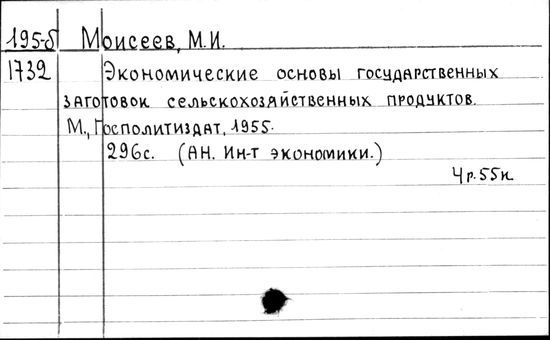 195-б Моисеев, М.И.
1732 Экономические основы государственных
заготовок сельскохозяйственных продуктов.
М., Госполитиздат, 1955.
296с. (АН. Ин-т экономики.)
4р.55к